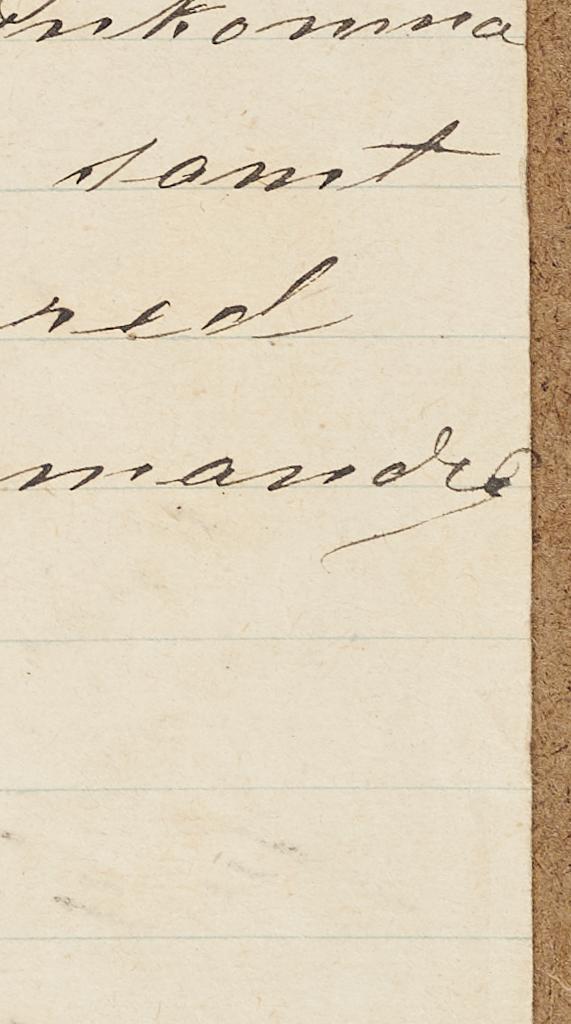 nkomna
samt
red
mandrs